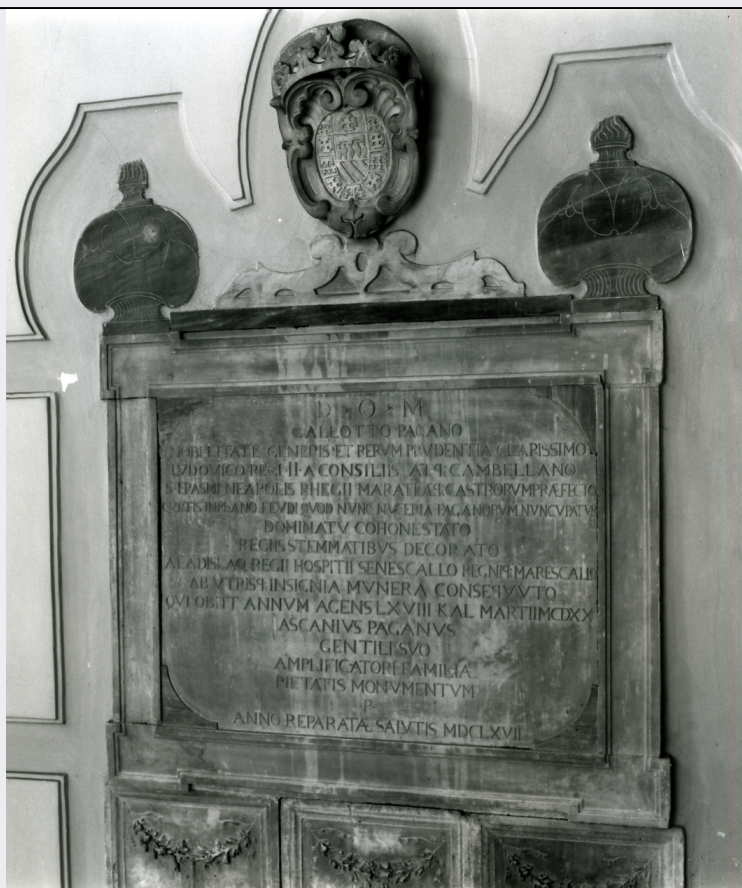 D · O · M
GALEOTTO PAGANO
NOBILITATE GENERIS ET RERVM PRVDENTIA CLARISSIMO
LVDOVICO REGI II A CONSILIIS ATQ CAMBELLANO
S ERASMI NEAPOLIS RHEGII MARATEAQ CASTRORVM PRÆFECTO
FEVDI QVOD NVNC NVCERIA PAGANORVM NVNCVPATVR
DOMINATV COHONESTATO
REGIIS STEMMATIBVS DECORATO
A LADISLAO REGII HOSPITII SENESCALLO REGNIQ MARESCALLO
AB VTRISQ INSIGNIA MVNERA CONSEQVVTO
QVI OBIIT ANNVM AGENS LXVIII KAL MARTII MCDXX
ASCANIVS PAGANVS
GENTILI SVO
AMPLIFICATORI FAMILIÆ
PIETATIS MONVMENTVM
P.
ANNO REPARATÆ SALVTIS MDCLXVII